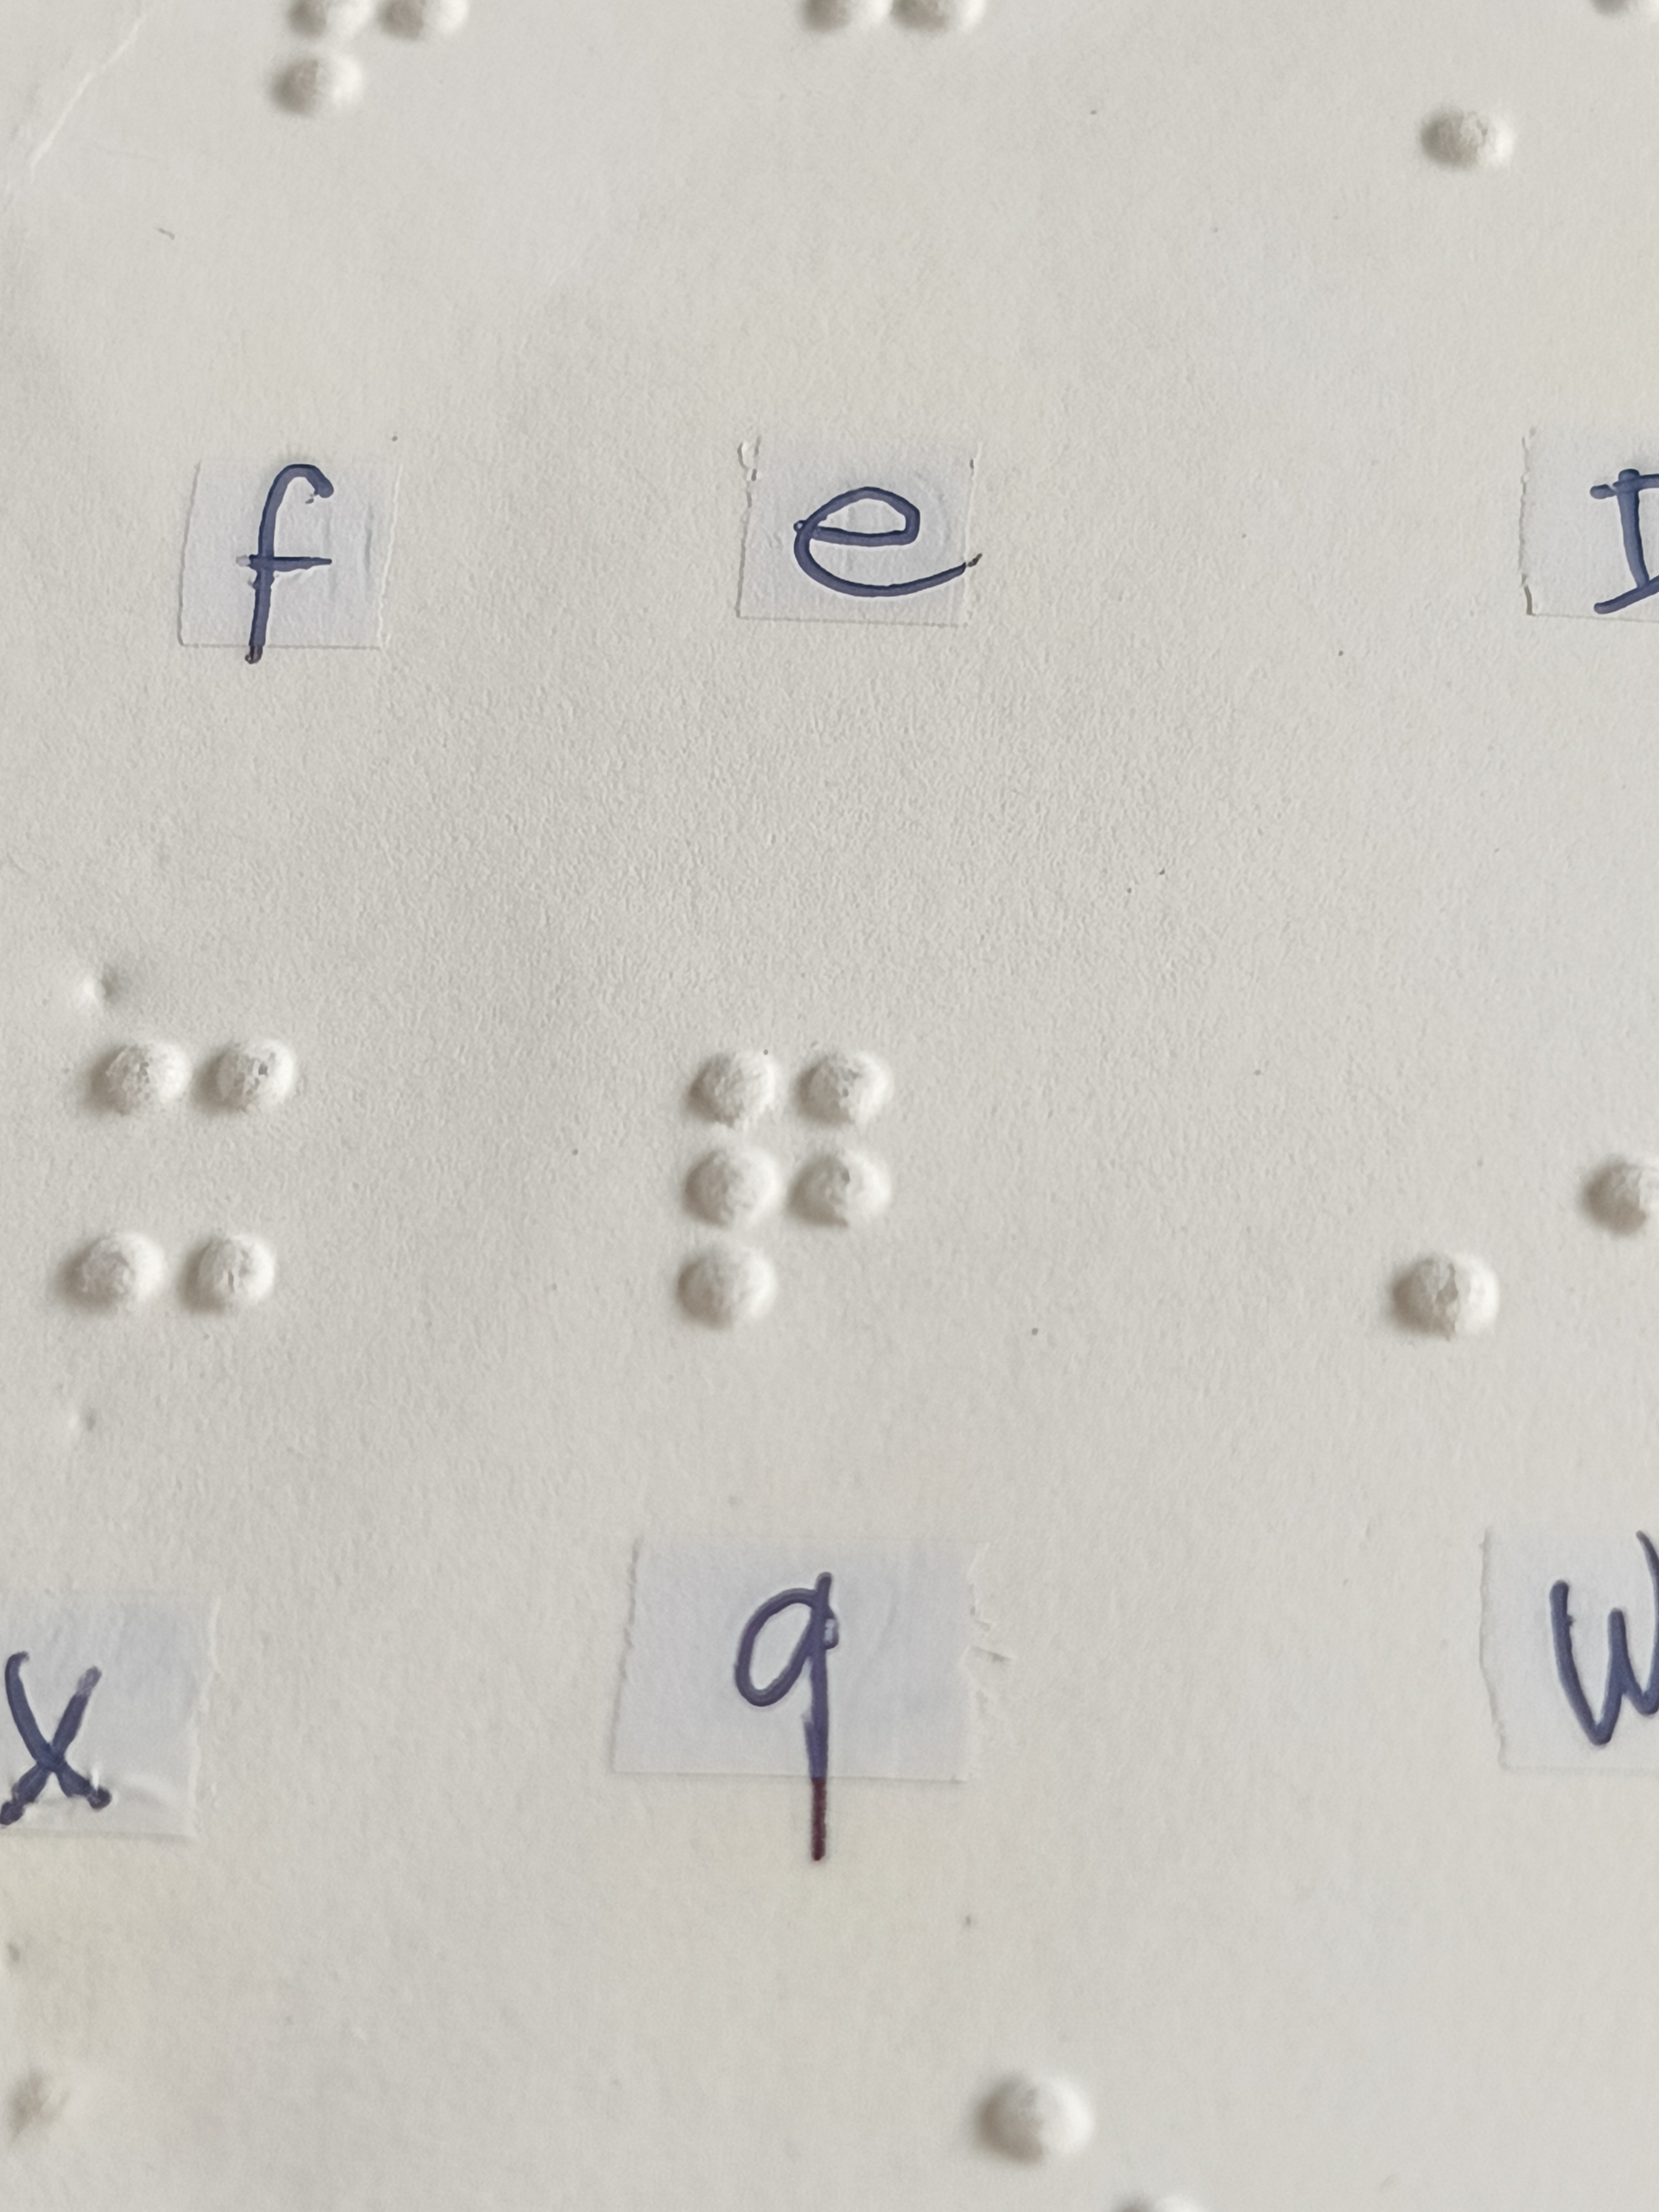 f e I
x q w